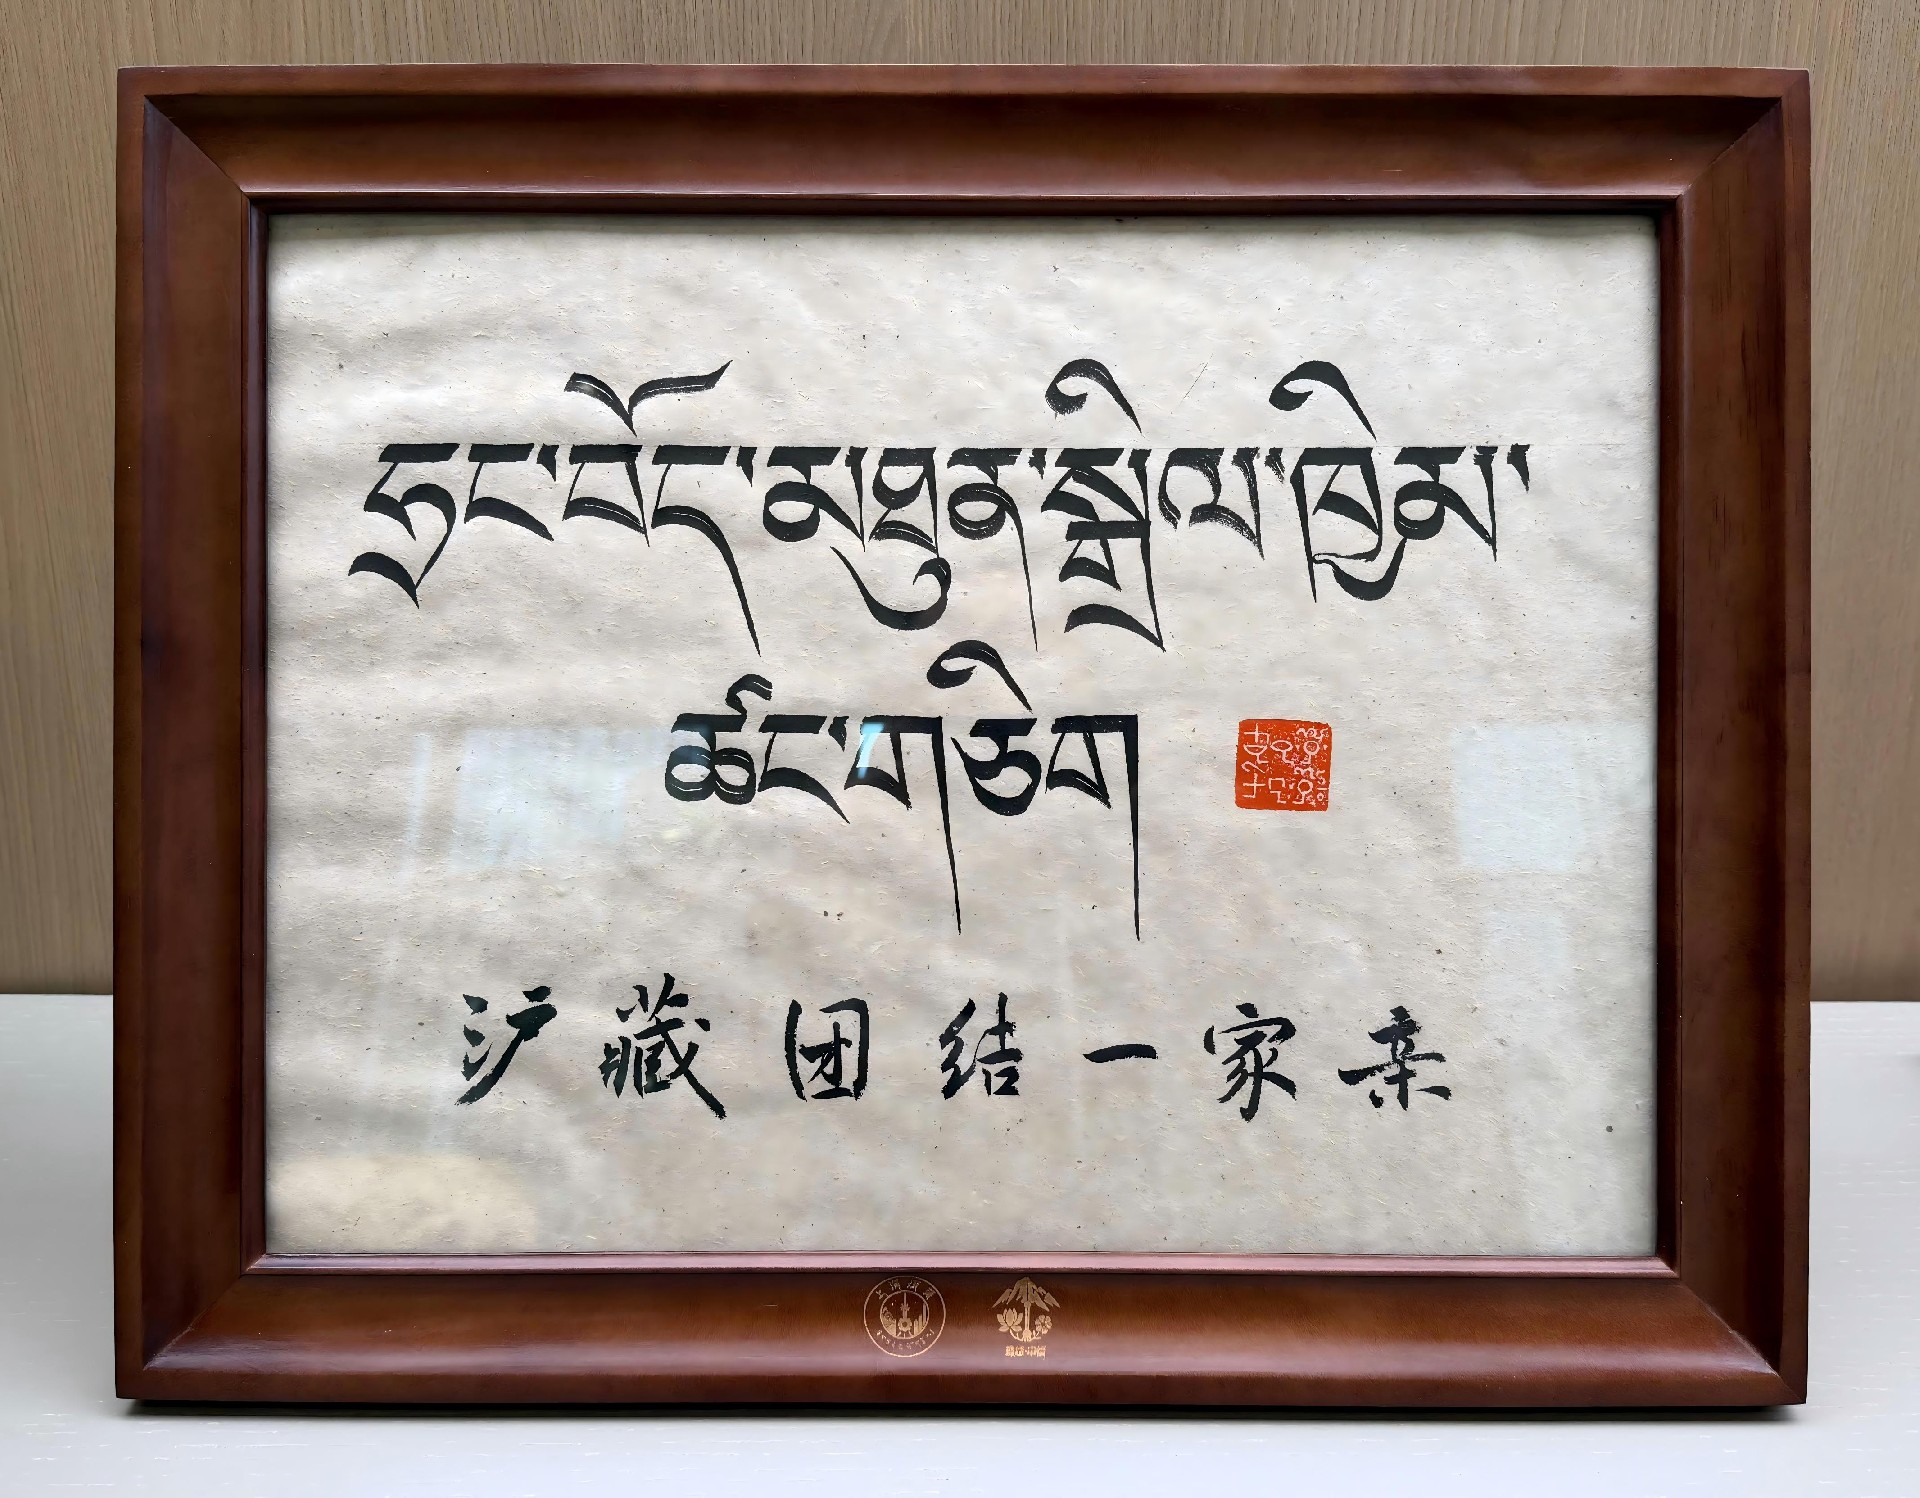 ཧྲང་བོད་མཐུན་སྒྲིལ་ཁྱིམ་
ཚང་གཅིག
沪藏团结一家亲